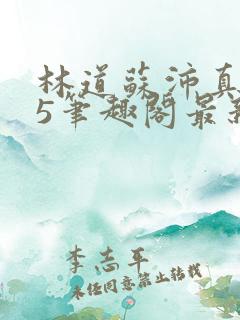 林道蘇沛真
5筆趣閣最新
李志平
未经同意禁止转载